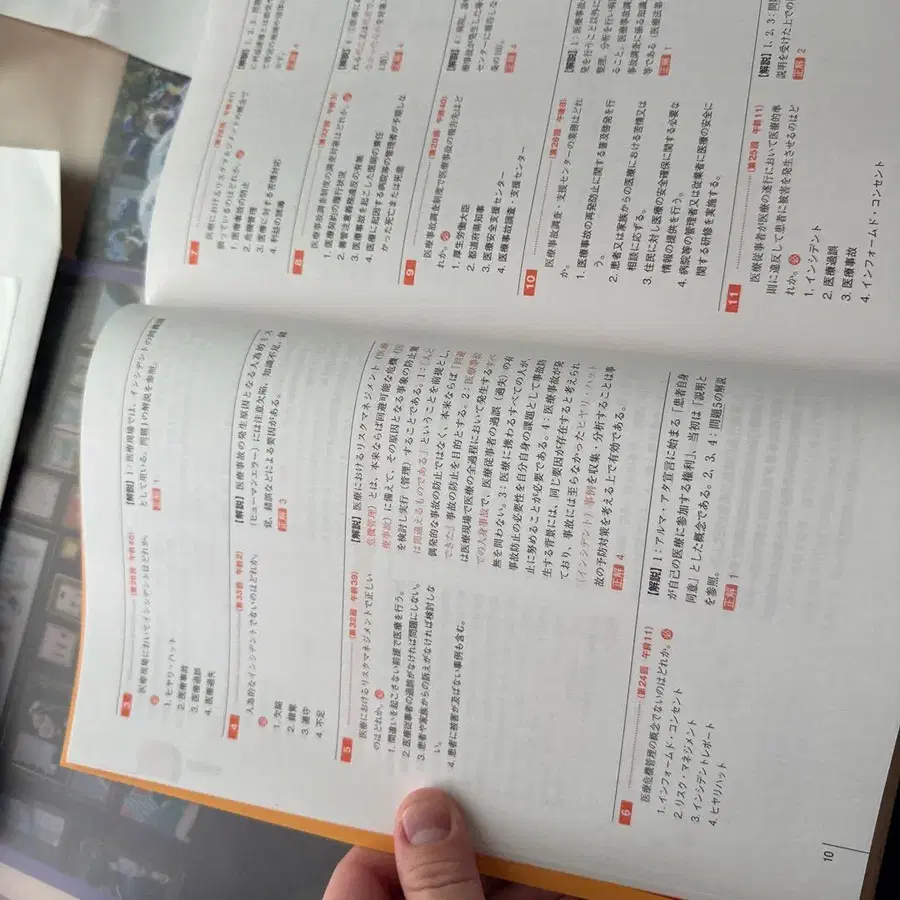 3
(第26回 午前40)
医療現場においてインシデントはどれか。
1. ヒヤリ・ハット
2. 医療事故
3. 医療過誤
4. 医療過失
【解説】1：医療現場では、インシデントの同義語
として用いる。問題1の解説を参照。
正解 1
4
(第33回 午前2)
人為的なインシデントでないのはどれか。
必
1. 欠陥
2. 錯覚
3. 遵守
4. 不足
【解説】医療事故の発生原因となる人為的ミス
(ヒューマンエラー)には注意欠陥、知識不足、錯
覚、錯誤などによる要因がある。
正解 3
5
(第32回 午前39)
医療におけるリスクマネジメントで正しい
のはどれか。必
1. 間違いを起こさない前提で医療を行う。
2. 医療従事者の過誤がなければ問題にしない。
3. 患者や家族からの訴えがなければ検討しな
い。
4. 患者に被害が及ばない事例も含む。
【解説】医療におけるリスクマネジメント（医療
危機管理）とは、本来ならば回避可能な危機（医
療事故）に備えて、その原因となる事象の防止策
を検討し実行（管理）することである。1：「人と
は間違えるものである」ということを前提とし、
偶発的な事故の防止ではなく、本来ならば「回避
できた」事故の防止を目的とする。2：医療事故
は医療現場で医療の全過程において発生するすべ
ての人身事故で、医療従事者の過誤（過失）の有
無を問わない。3：医療に携わるすべての人が、
事故防止の必要性を自分自身の課題として事故防
止に努めることが必要である。4：医療事故が発
生する背景には、同じ要因が存在すると考えられ
ており、事故には至らなかったヒヤリ、ハット
（インシデント）事例を収集、分析することは事
故の予防対策を考える上で有効である。
正解 4
6
(第24回 午前11)
医療危機管理の概念でないのはどれか。必
1. インフォームド・コンセント
2. リスク・マネジメント
3. インシデントレポート
4. ヒヤリハット
【解説】1：アルマ・アタ宣言に始まる「患者自身
が自己の医療に参加する権利」、当初は「説明と
同意」とした概念である。2, 3, 4：問題5の解説
を参照。
正解 1
10
7
医療におけるリスクマネジメントの概念で
誤っているのはどれか。必
1. 医療事故の防止
2. 危機管理
3. 医療に対する苦情対応
4. 利益の誘導
正解 4
8
医療事故調査制度の調査対象はどれか。必
1. 医療契約の履行状況
2. 善管注意義務違反の有無
3. 医療事故を起こした医師の責任
4. 医療に起因する病院等の管理者が予期しな
かった死亡または死産
正解 4
9
(第29回 午前40)
医療事故調査制度で医療事故の報告先はど
れか。必
1. 厚生労働大臣
2. 都道府県知事
3. 医療安全支援センター
4. 医療事故調査・支援センター
正解 4
10
医療事故調査・支援センターの業務はどれ
か。
1. 医療事故の再発防止に関する普及啓発を行
う。
2. 患者又は家族からの医療における苦情又は
相談に応ずる。
3. 住民に対し医療の安全確保に関する必要な
情報の提供を行う。
4. 病院等の管理者又は従業者に医療の安全に
関する研修を実施する。
正解 1
11
(第25回 午前11)
医療従事者が医療の遂行において医療的準
則に違反して患者に被害を発生させるのはど
れか。必
1. インシデント
2. 医療過誤
3. 医療事故
4. インフォームド・コンセント
【解説】1, 2, 3：問
説明を受けた上での同
正解 2